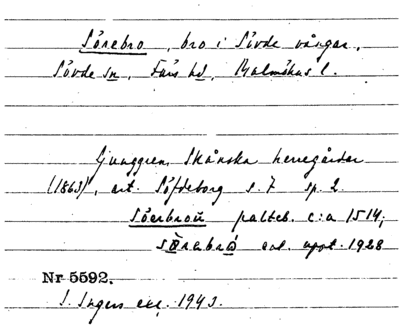 Sörebro, bro i Sövde vångar,
Sövde sn, Färs hd, Malmöhus l.
Ljunggren, Skånska herregårdar
(1863), art. Söfdeborg s. 7 sp. 2.
Söerbroū palteb. c:a 1514;
enl. uppt. 1928
Nr 5592.
S. Ingers exc. 1943.